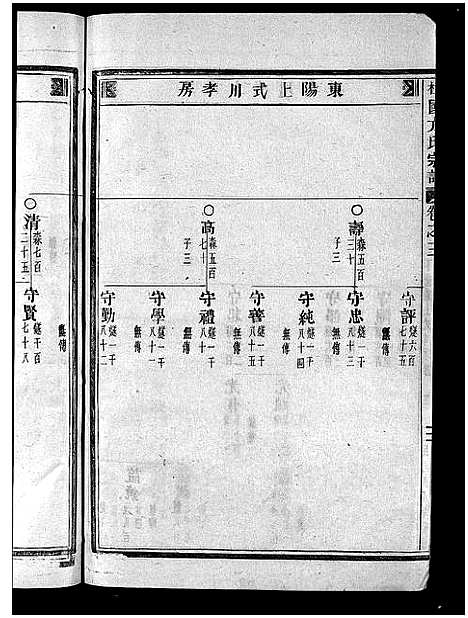 東陽上式川孝房
守評 燧六百七十五 無傳
壽 森五百三十 子三
守忠 燧一千八十三 無傳
守純 燧一千八十四 無傳
守善 燧一千八十五
高 森五百七十 子三
守禮 燧一千八十一 無傳
守學 燧一千八十 無傳
守勤 燧一千八十二
清 森七百二十五
守賢 燧千百七十八 無傳